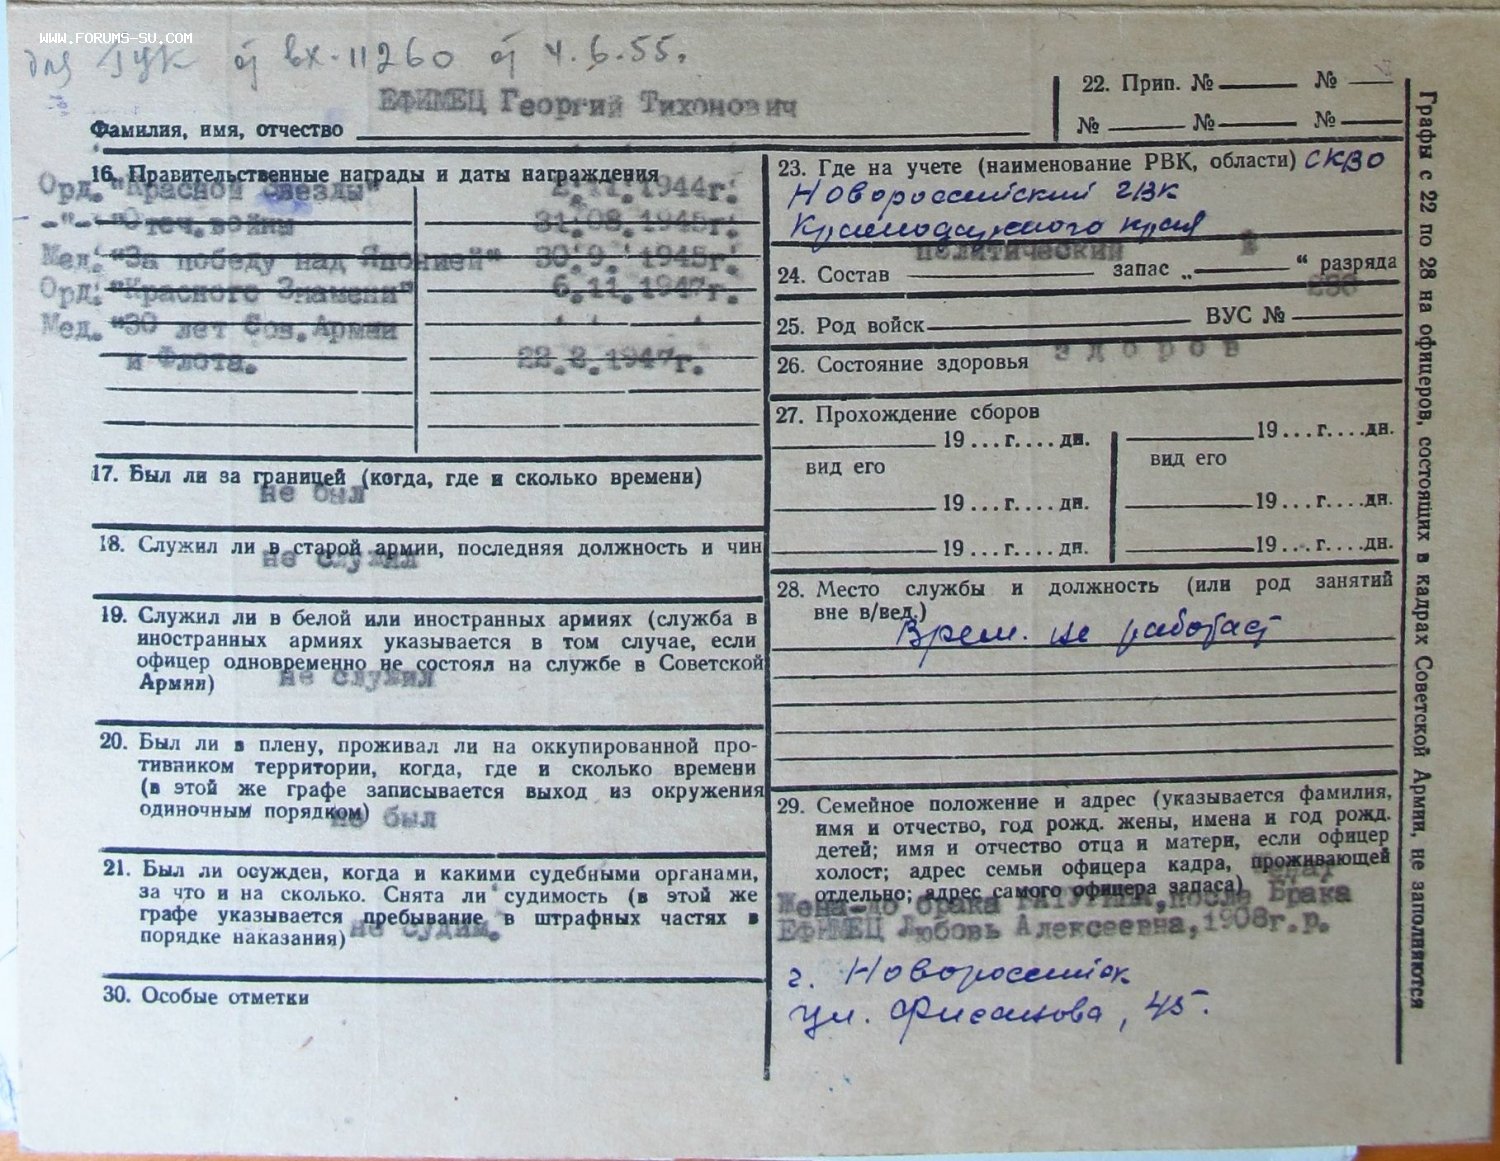 WWW.FORUMS-SU.COM
для ГУК от вх. 11260 от 4.6.55.
ЕФИМЕЦ Георгий Тихонович
Фамилия, имя, отчество
16. Правительственные награды и даты награждения
Орд. "Красной Звезды" 2.11.1944г.
-"- "Отеч. войны 31.08.1945г.
Мед. "За победу над Японией" 30.9. 1945г.
Орд. "Красного Знамени" 6.11.1947г.
Мед. "30 лет Сов. Армии
и Флота. 22.2.1947г.
17. Был ли за границей (когда, где и сколько времени)
не был
18. Служил ли в старой армии, последняя должность и чин
не служил
19. Служил ли в белой или иностранных армиях (служба в
иностранных армиях указывается в том случае, если
офицер одновременно не состоял на службе в Советской
Армии) не служил
20. Был ли в плену, проживал ли на оккупированной про-
тивником территории, когда, где и сколько времени
(в этой же графе записывается выход из окружения
одиночным порядком) не был
21. Был ли осужден, когда и какими судебными органами,
за что и на сколько. Снята ли судимость (в этой же
графе указывается пребывание в штрафных частях в
порядке наказания) не судим.
30. Особые отметки
22. Прип. № № 
№ № №
23. Где на учете (наименование РВК, области) СКВО
Новороссийский ГВК
Краснодарского края
политический 2
24. Состав запас „ “ разряда
25. Род войск ВУС №
здоров
26. Состояние здоровья
27. Прохождение сборов
19...г....дн. 19...г....дн.
вид его вид его
19...г....дн. 19...г....дн.
19...г....дн. 19...г....дн.
28. Место службы и должность (или род занятий
вне в/вед.)
Врем. не работает
29. Семейное положение и адрес (указывается фамилия,
имя и отчество, год рожд. жены, имена и год рожд.
детей; имя и отчество отца и матери, если офицер
холост; адрес семьи офицера кадра, проживающей
отдельно; адрес самого офицера запаса) женат
Жена-до брака после брака
ЕФИМЕЦ Любовь Алексеевна, 1908г.р.
г. Новороссийск
ул. 45.
Графы с 22 по 28 на офицеров, состоящих в кадрах Советской Армии, не заполняются